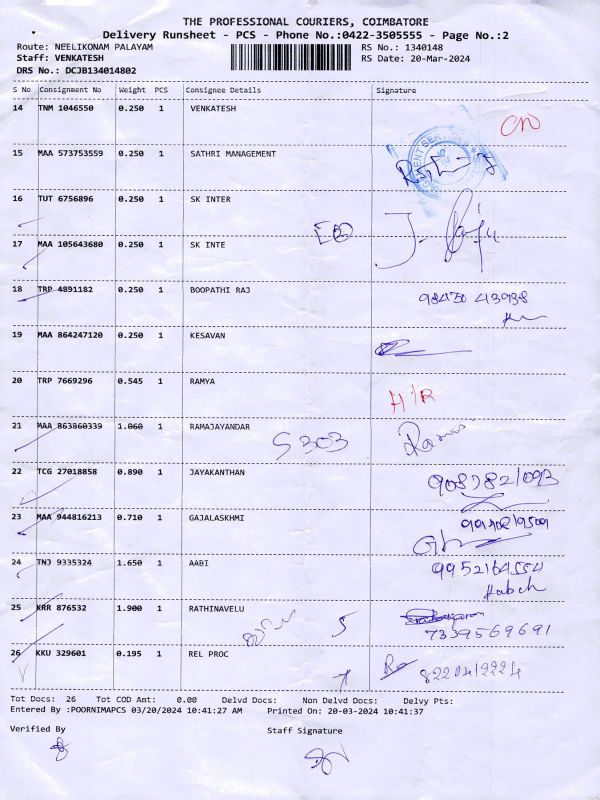 THE PROFESSIONAL COURIERS, COIMBATORE
Delivery Runsheet - PCS - Phone No.:0422-3505555 - Page No.:2
Route: NEELIKONAM PALAYAM RS No.: 1340148
Staff: VENKATESH RS Date: 20-Mar-2024
DRS No.: DCJB134014802
S No Consignment No Weight PCS Consignee Details Signature
14 TNM 1046550 0.250 1 VENKATESH
15 MAA 573753559 0.250 1 SATHRI MANAGEMENT
16 TUT 6756896 0.250 1 SK INTER
17 MAA 105643680 0.250 1 SK INTE
18 TRP 4891182 0.250 1 BOOPATHI RAJ
19 MAA 864247120 0.250 1 KESAVAN
20 TRP 7669296 0.545 1 RAMYA H/R
21 MAA 863860339 1.060 1 RAMAJAYANDAR S303
22 TCG 27018858 0.890 1 JAYAKANTHAN
23 MAA 944816213 0.710 1 GAJALASKHMI
24 TNJ 9335324 1.650 1 AABI 9952164554
25 KRR 876532 1.900 1 RATHINAVELU 7339569691
26 KKU 329601 0.195 1 REL PROC
Tot Docs: 26 Tot COD Amt: 0.00 Delvd Docs: Non Delvd Docs: Delvy Pts:
Entered By :POORNIMAPCS 03/20/2024 10:41:27 AM Printed On: 20-03-2024 10:41:37
Verified By Staff Signature